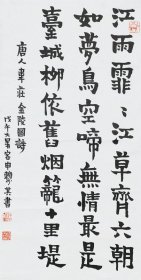 江雨霏〻江草齊六朝
如夢鳥空啼無情最是
臺城柳依舊烟籠十里堤
唐人韋莊金陵圖詩